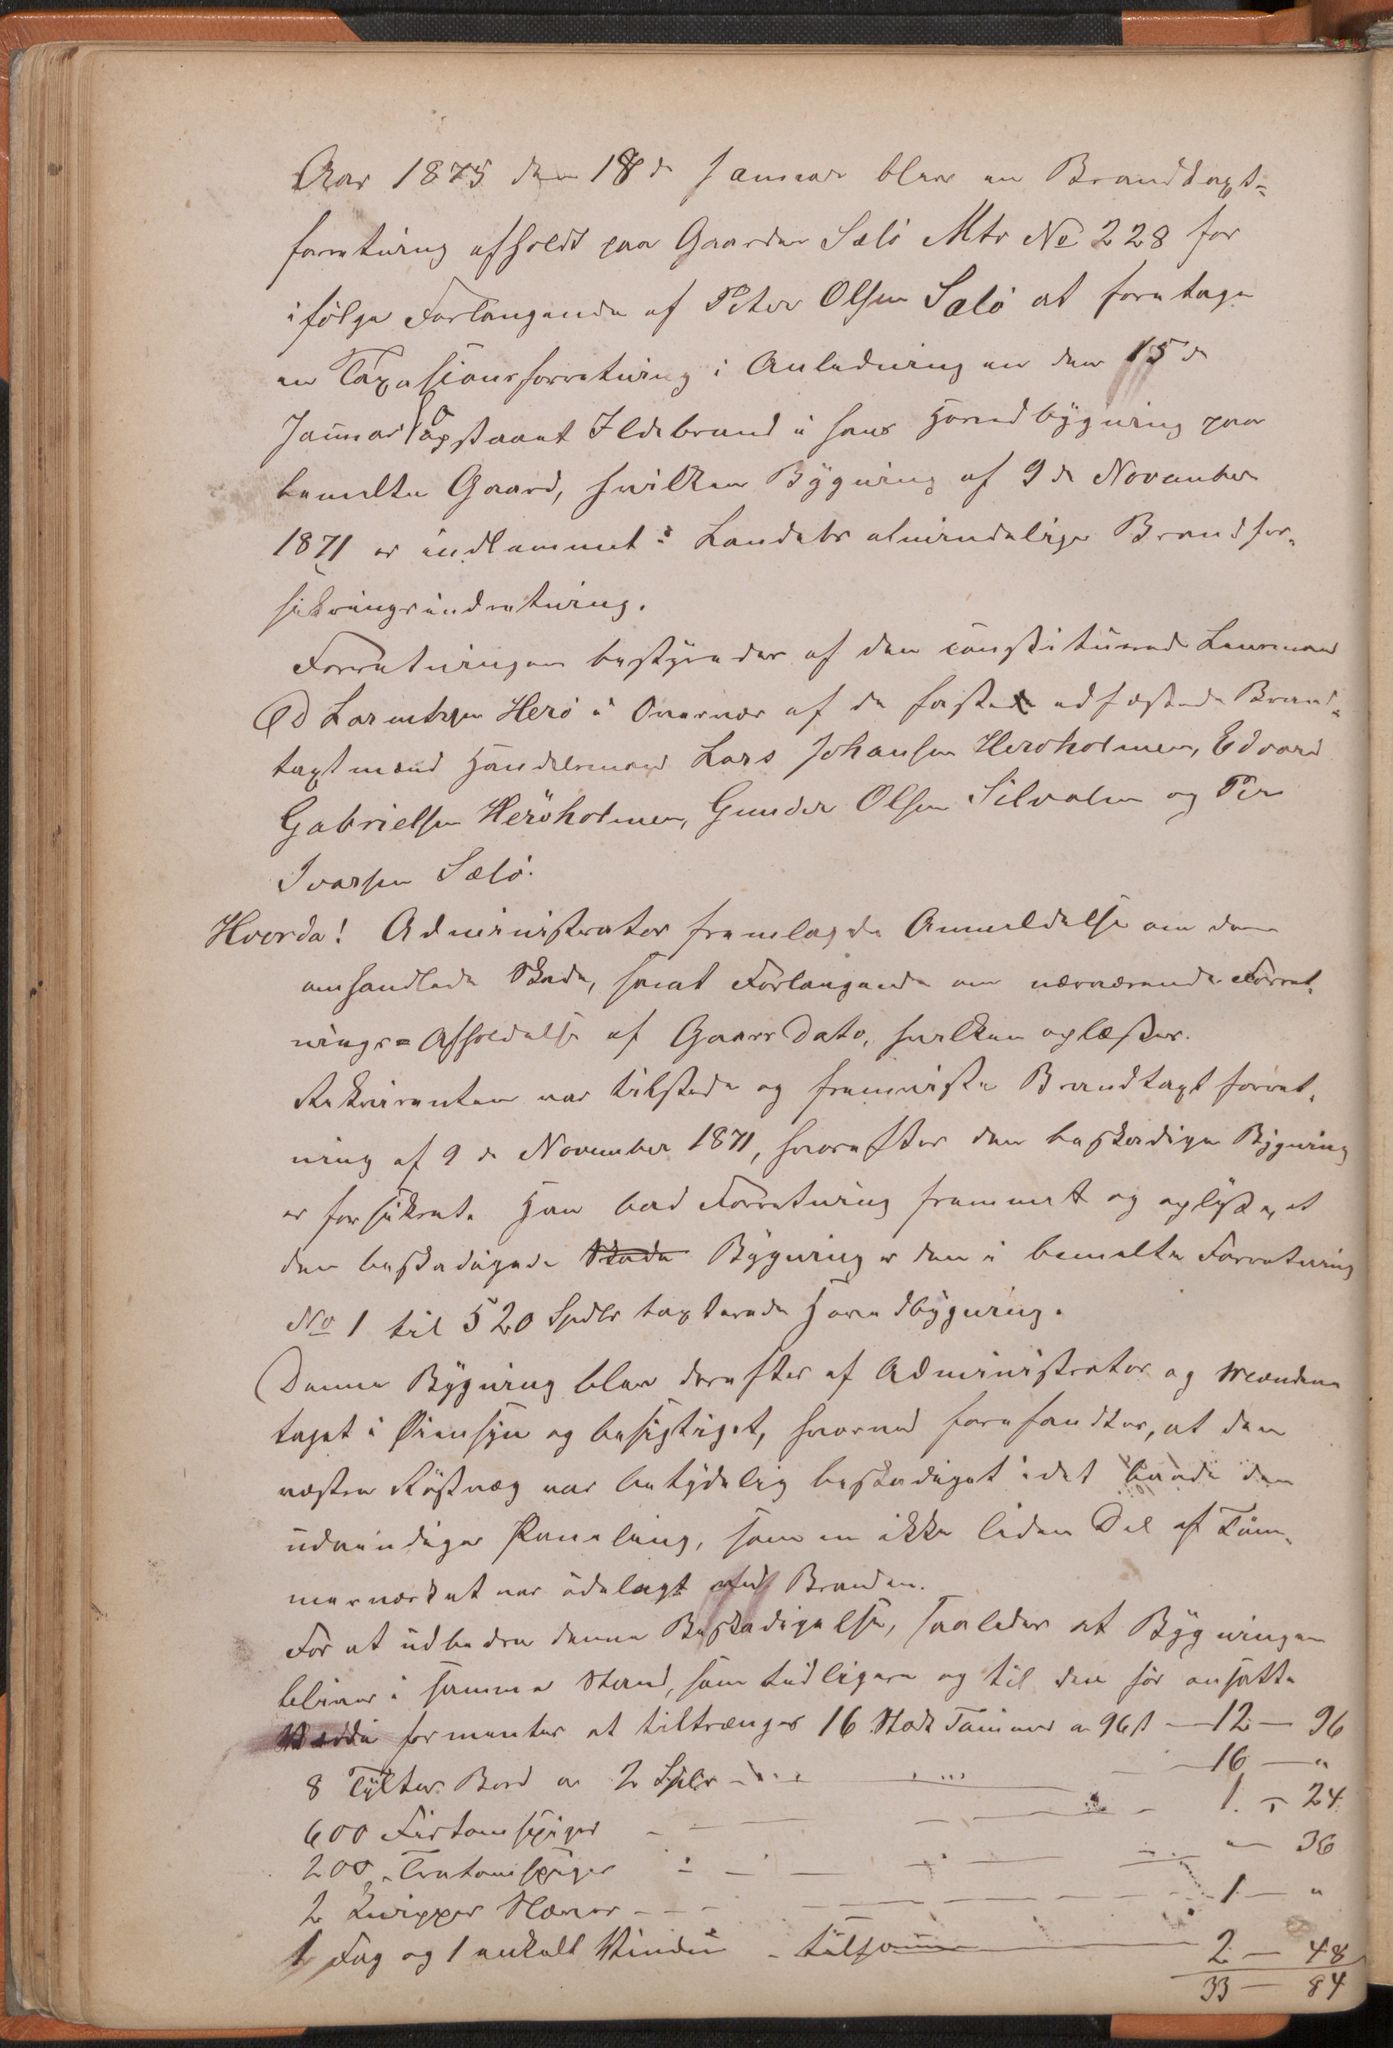 Aar 1875 den 18de Januar blev en Brandtaxt-
forretning afholdt paa Gaarden Sælö Mtr No 228 for
ifølge Forlangende af Peter Olsen Sælö at foretage
en Taxasionsforretning i Anledning en den 15de
Januar opstaaet Ildebrand i hans Hovedbygning paa
bemelte Gaard, hvilken Bygning af 9de November
1871 er indlemmet i Landets almindelige Brandfor-
sikringsindretning.
Forretningen bestyredes af den constituerede Lensmand
Lorentsen Herö i Overvær af de faste edfæstede Brand-
taxtmænd Handelsmand Lars Johansen Heröholmen, Edvard
Gabrielsen Heröholmen, Gunder Olsen Silvalen og Per
Ivarsen Sælö.
Hvorda! Administrator fremlagde Anmeldelse om den
omhandlede Skade, samt Forlangende om nærværende Forret-
nings-Afholdelse af Gaars Dato, hvilken oplæstes.
Rekvirenten var tilstede og fremviste Brandtaxtforret-
ning af 9de November 1871, hvorefter den beskadige Bygning
er forsikret. Han bad Forretning fremmet og oplyste, at
den beskadigede Skade Bygning er den i bemelte Forretning
No 1 til 520 Spdlr taxerede Hovedbygning.
Denne Bygning blev derefter af Administrator og Mændene
taget i Øiensyn og besigtiget, hvorved forefandtes, at den
vestre Röstvæg var betydelig beskadiget idet baade den
udvendige Paneling, som en ikke liden Del af Töm-
merværket var ödelagt ved Branden.
For at udbedre denne Beskadigelse, saaledes at Bygningen
bliver i samme Stand, som tidligere og til den før ansatte
Værdi formentes at tiltrænges 16 Stok Tömmer a 96 s — 12 — 96
8 Tylter Bord a 2 Spdlr — 16 — "
600 Firtomspiger — 1 — 24
200 Tretomspiger — " — 36
2 Knipper Næver — 1 — "
1 Fag og 1 enkelt Vindu tilsam 2 — 48
33 — 84